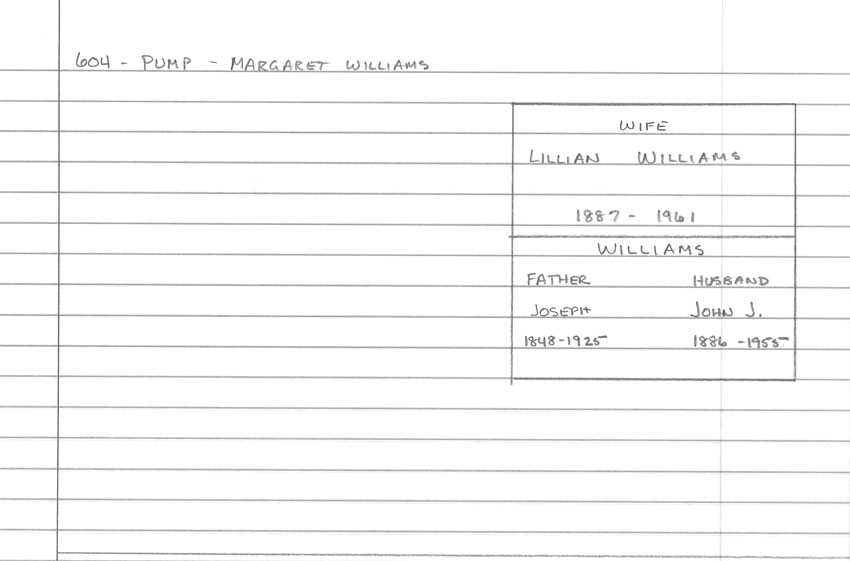 604 - PUMP - MARGARET WILLIAMS
WIFE
LILLIAN WILLIAMS
1887 - 1961
WILLIAMS
FATHER HUSBAND
JOSEPH JOHN J.
1848-1925 1886 -1955